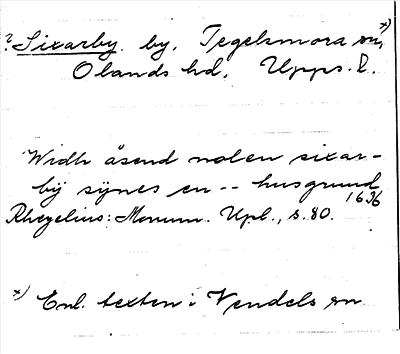 ? Sixarby. by, Tegelsmora sn, x)
Olands hd, Upps. l.
Widh åsend nolen sixar-
bÿ sÿnes en -- husgrund
1636
Rhezelius: Monum. Upl., s. 80.
x) Enl. texten i Vendels sn